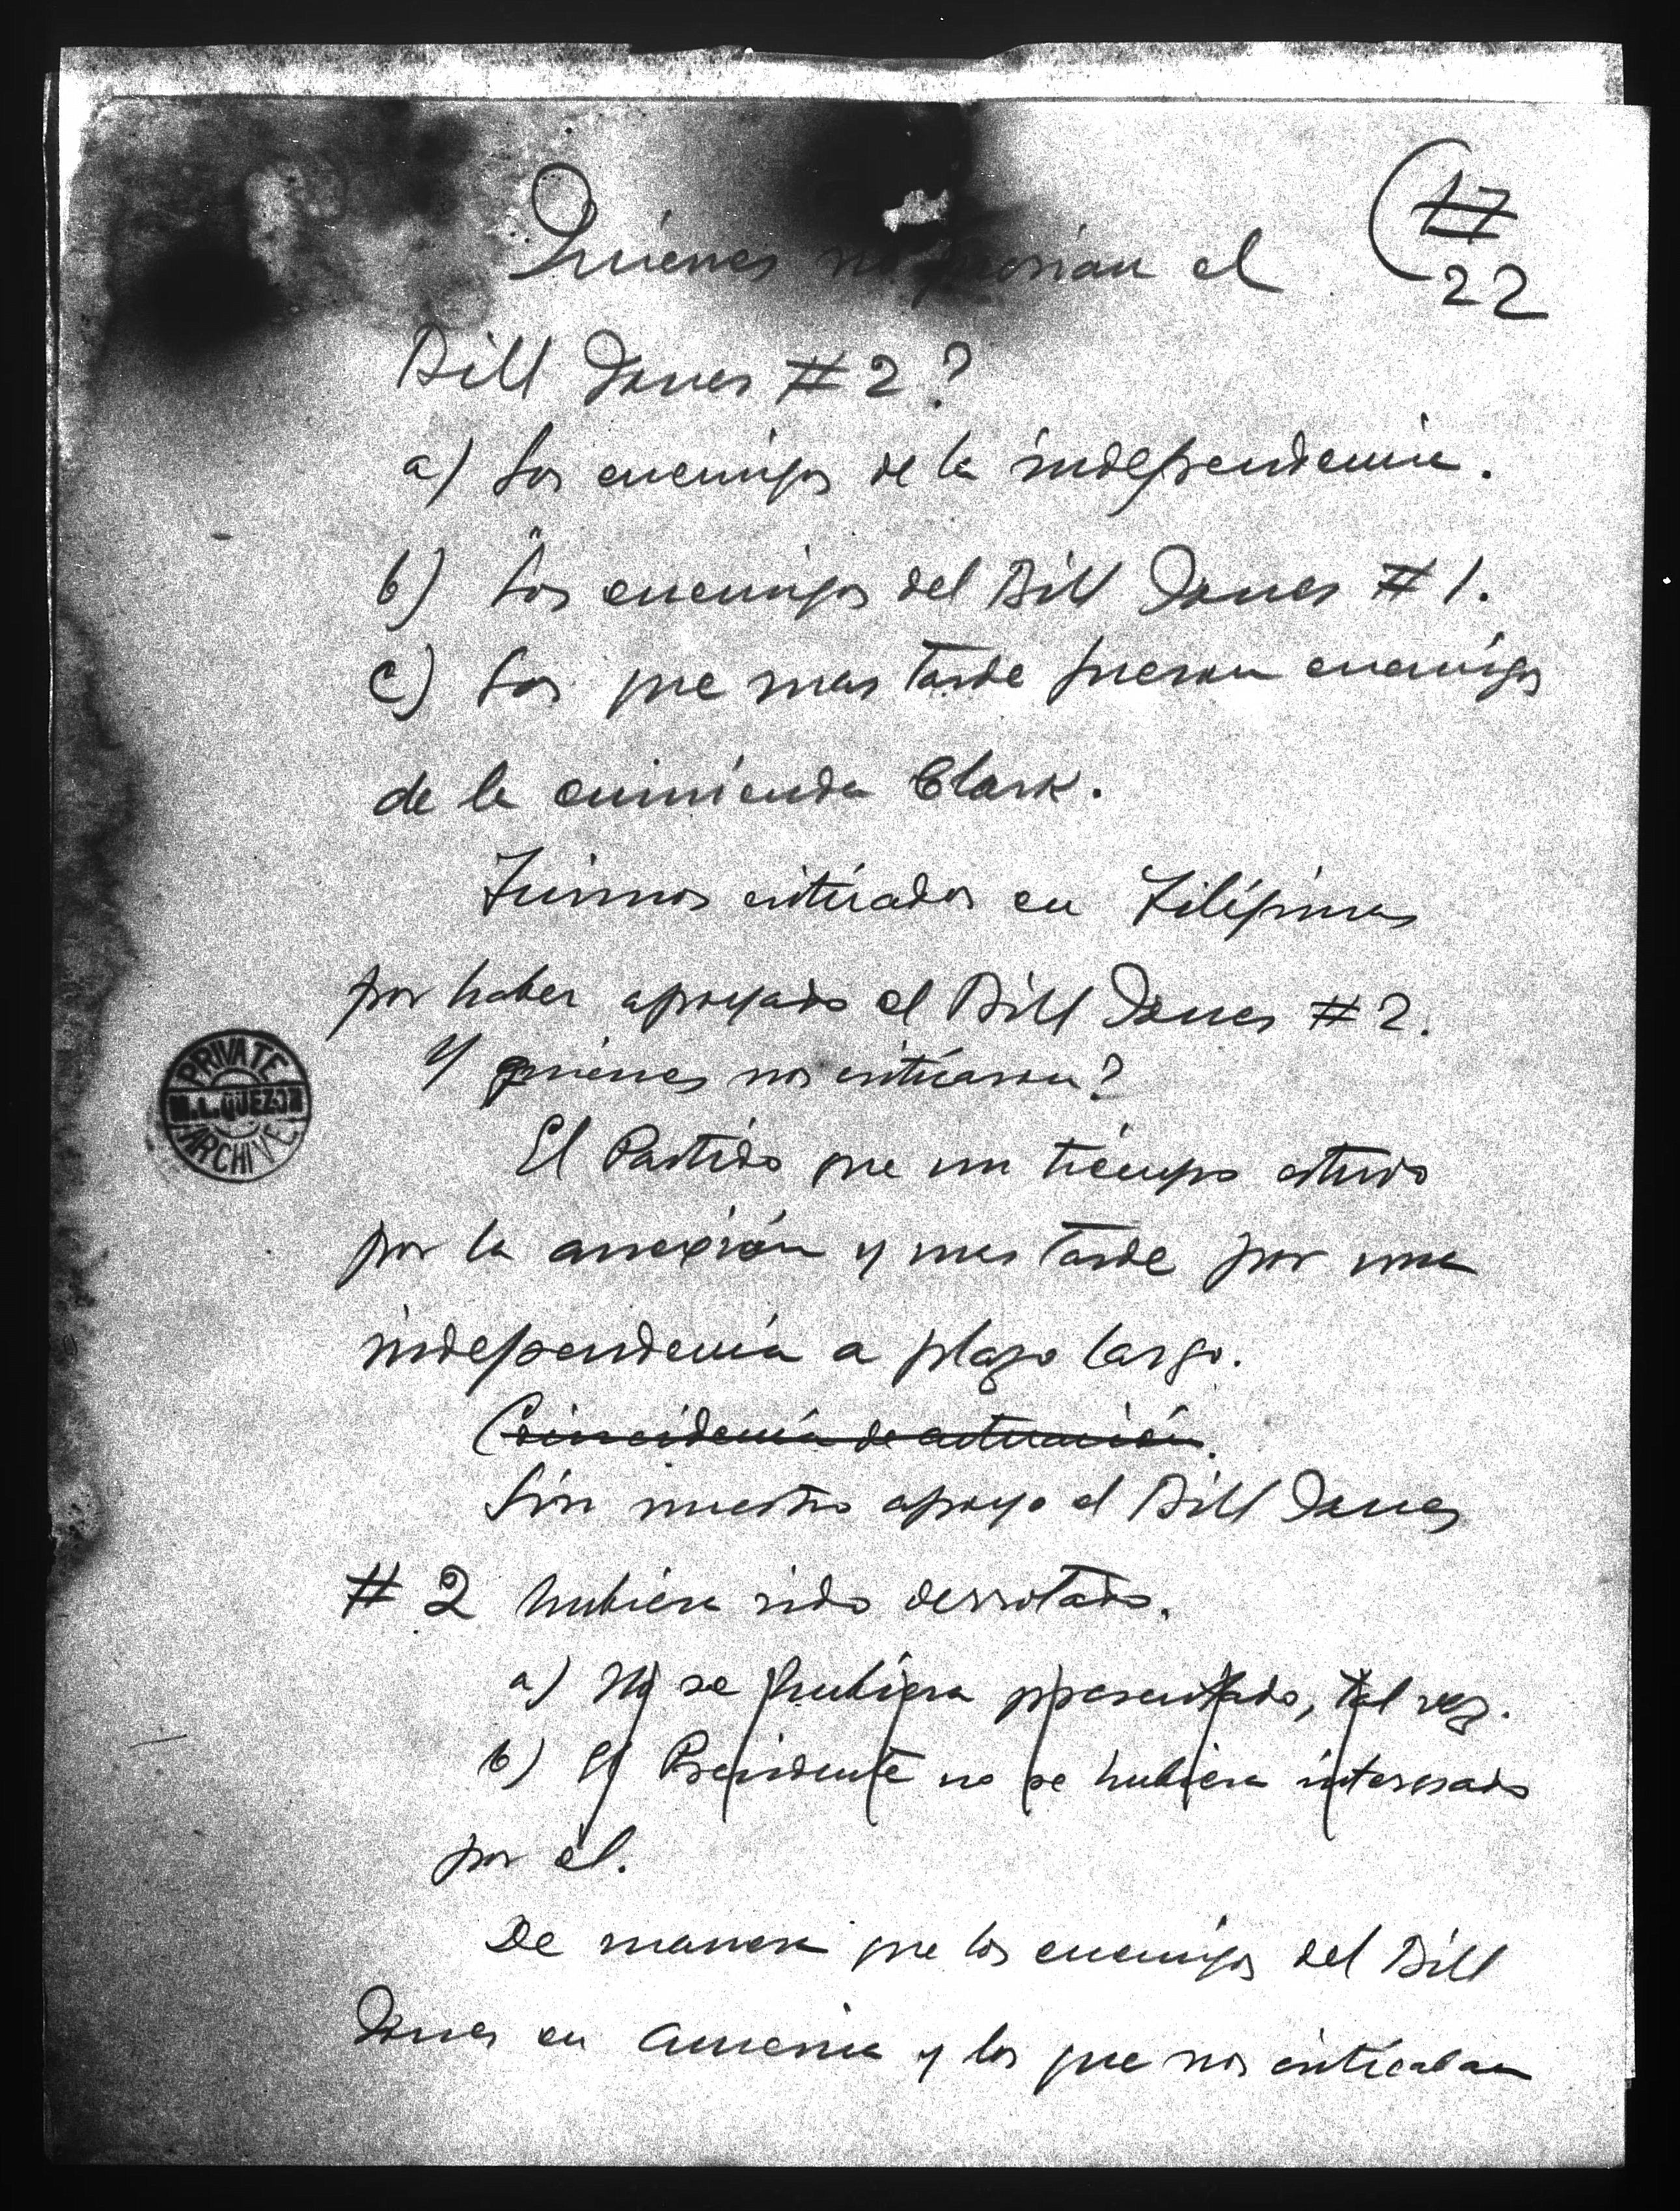 17
22
Quienes no querian el
Bill Jones # 2?
a) Los enemigos de la independencia.
b) Los enemigos del Bill Jones # 1.
c) Los que mas tarde fueron enemigos
de la enmienda Clark.
Fuimos criticados en Filipinas
por haber apoyado el Bill Jones # 2.
Y quienes nos criticaron?
El Partido que un tiempo estuvo
por la anexión y mas tarde por una
independencia a plazo largo.
Coincidencia de actuación.
Sin nuestro apoyo el Bill Jones
# 2 hubiera sido derrotado.
a) No se hubiera presentado, tal vez.
b) El Presidente no se hubiera interesado
por él.
De manera que los enemigos del Bill
Jones en America y los que nos criticaban
PRIVATE
M.L. QUEZON
ARCHIVE